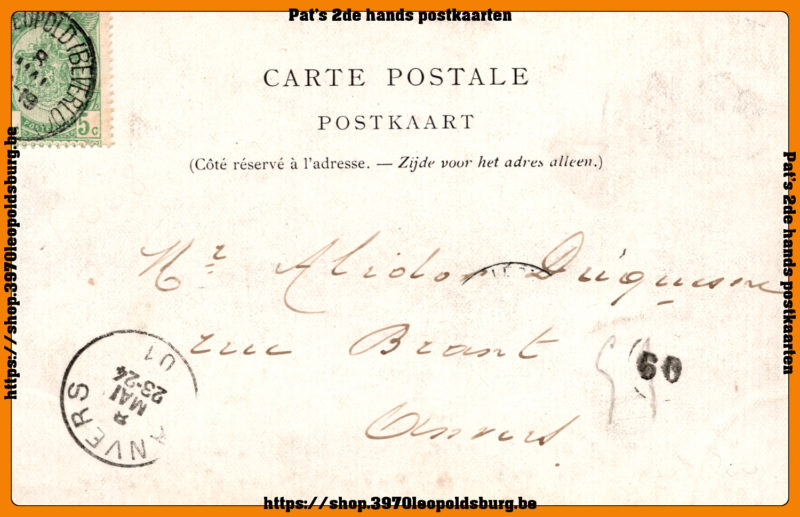 Pat's 2de hands postkaarten
LEOPOLD (BEVERLO
8
MAI
5 C
CARTE POSTALE
POSTKAART
(Côté réservé à l'adresse. — Zijde voor het adres alleen.)
https://shop.3970leopoldsburg.be
Pat's 2de hands postkaarten
Mr Alidor Duquesne
rue Brant
Anvers
60
ANVERS
8
MAI
23-24
01
https://shop.3970leopoldsburg.be